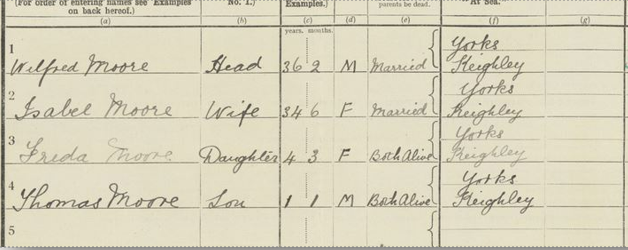 (For order of entering names see "Examples on back hereof.) No. 1.) Examples.) parents be dead. "At Sea."
(a) (b) (c) (d) (e) (f) (g)
years. months.
1 Yorks
Wilfred Moore Head 36 2 M Married Keighley
2 Yorks
Isabel Moore Wife 34 6 F Married Keighley
3 Yorks
Freda Moore Daughter 4 3 F Both Alive Keighley
4 Yorks
Thomas Moore Son 1 1 M Both Alive Keighley
5